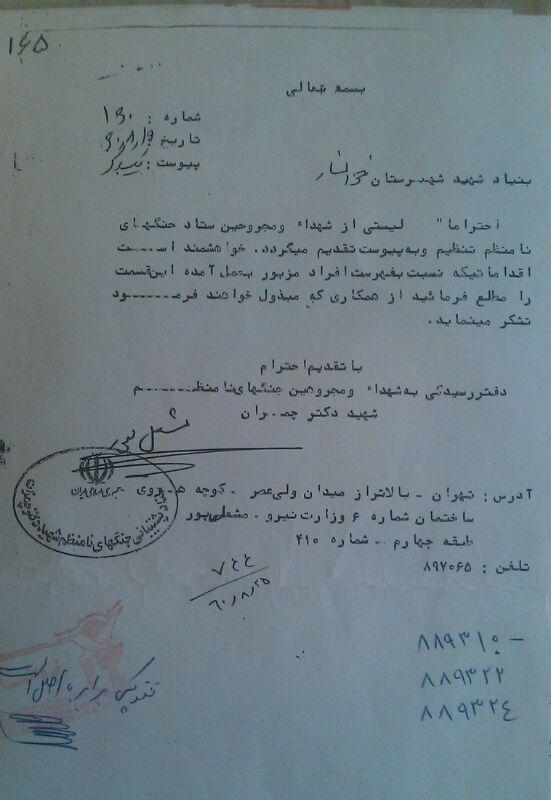 ۱۶۵
بسمه تعالی
شماره : ۱۳۰
تاریخ
پیوست :
بنیاد شهید شهرستان
احتراما" لیستی از شهداء ومجروحین ستاد جنگهای
نامنظم تنظیم وبه پیوست تقدیم میگردد. خواهشمند اســـت
اقداماتیکه نسبت بفهرست افراد مزبور بعمل آمده اینقسمت
را مطلع فرمائید از همکاری که مبذول خواهند فرمـــود
تشکر مینماید.
با تقدیم احترام
دفتر رسیدگی به شهداء ومجروحین جنگهای نامنظـــم
شهید دکتر چمـران
جمهوری اسلامی ایران
آدرس : تهران - بالاتر از میدان ولی عصر - کوچه
ساختمان شماره ۶ وزارت نیرو -
طبقه چهارم - شماره ۴۱۰
تلفن : ۸۹۲۰۶۵
۷۴۴
۶۰/۸/۲۵
۸۸۹۳۱۰ -
۸۸۹۳۲۲
۸۸۹۳۲۴
برابر با اصل است